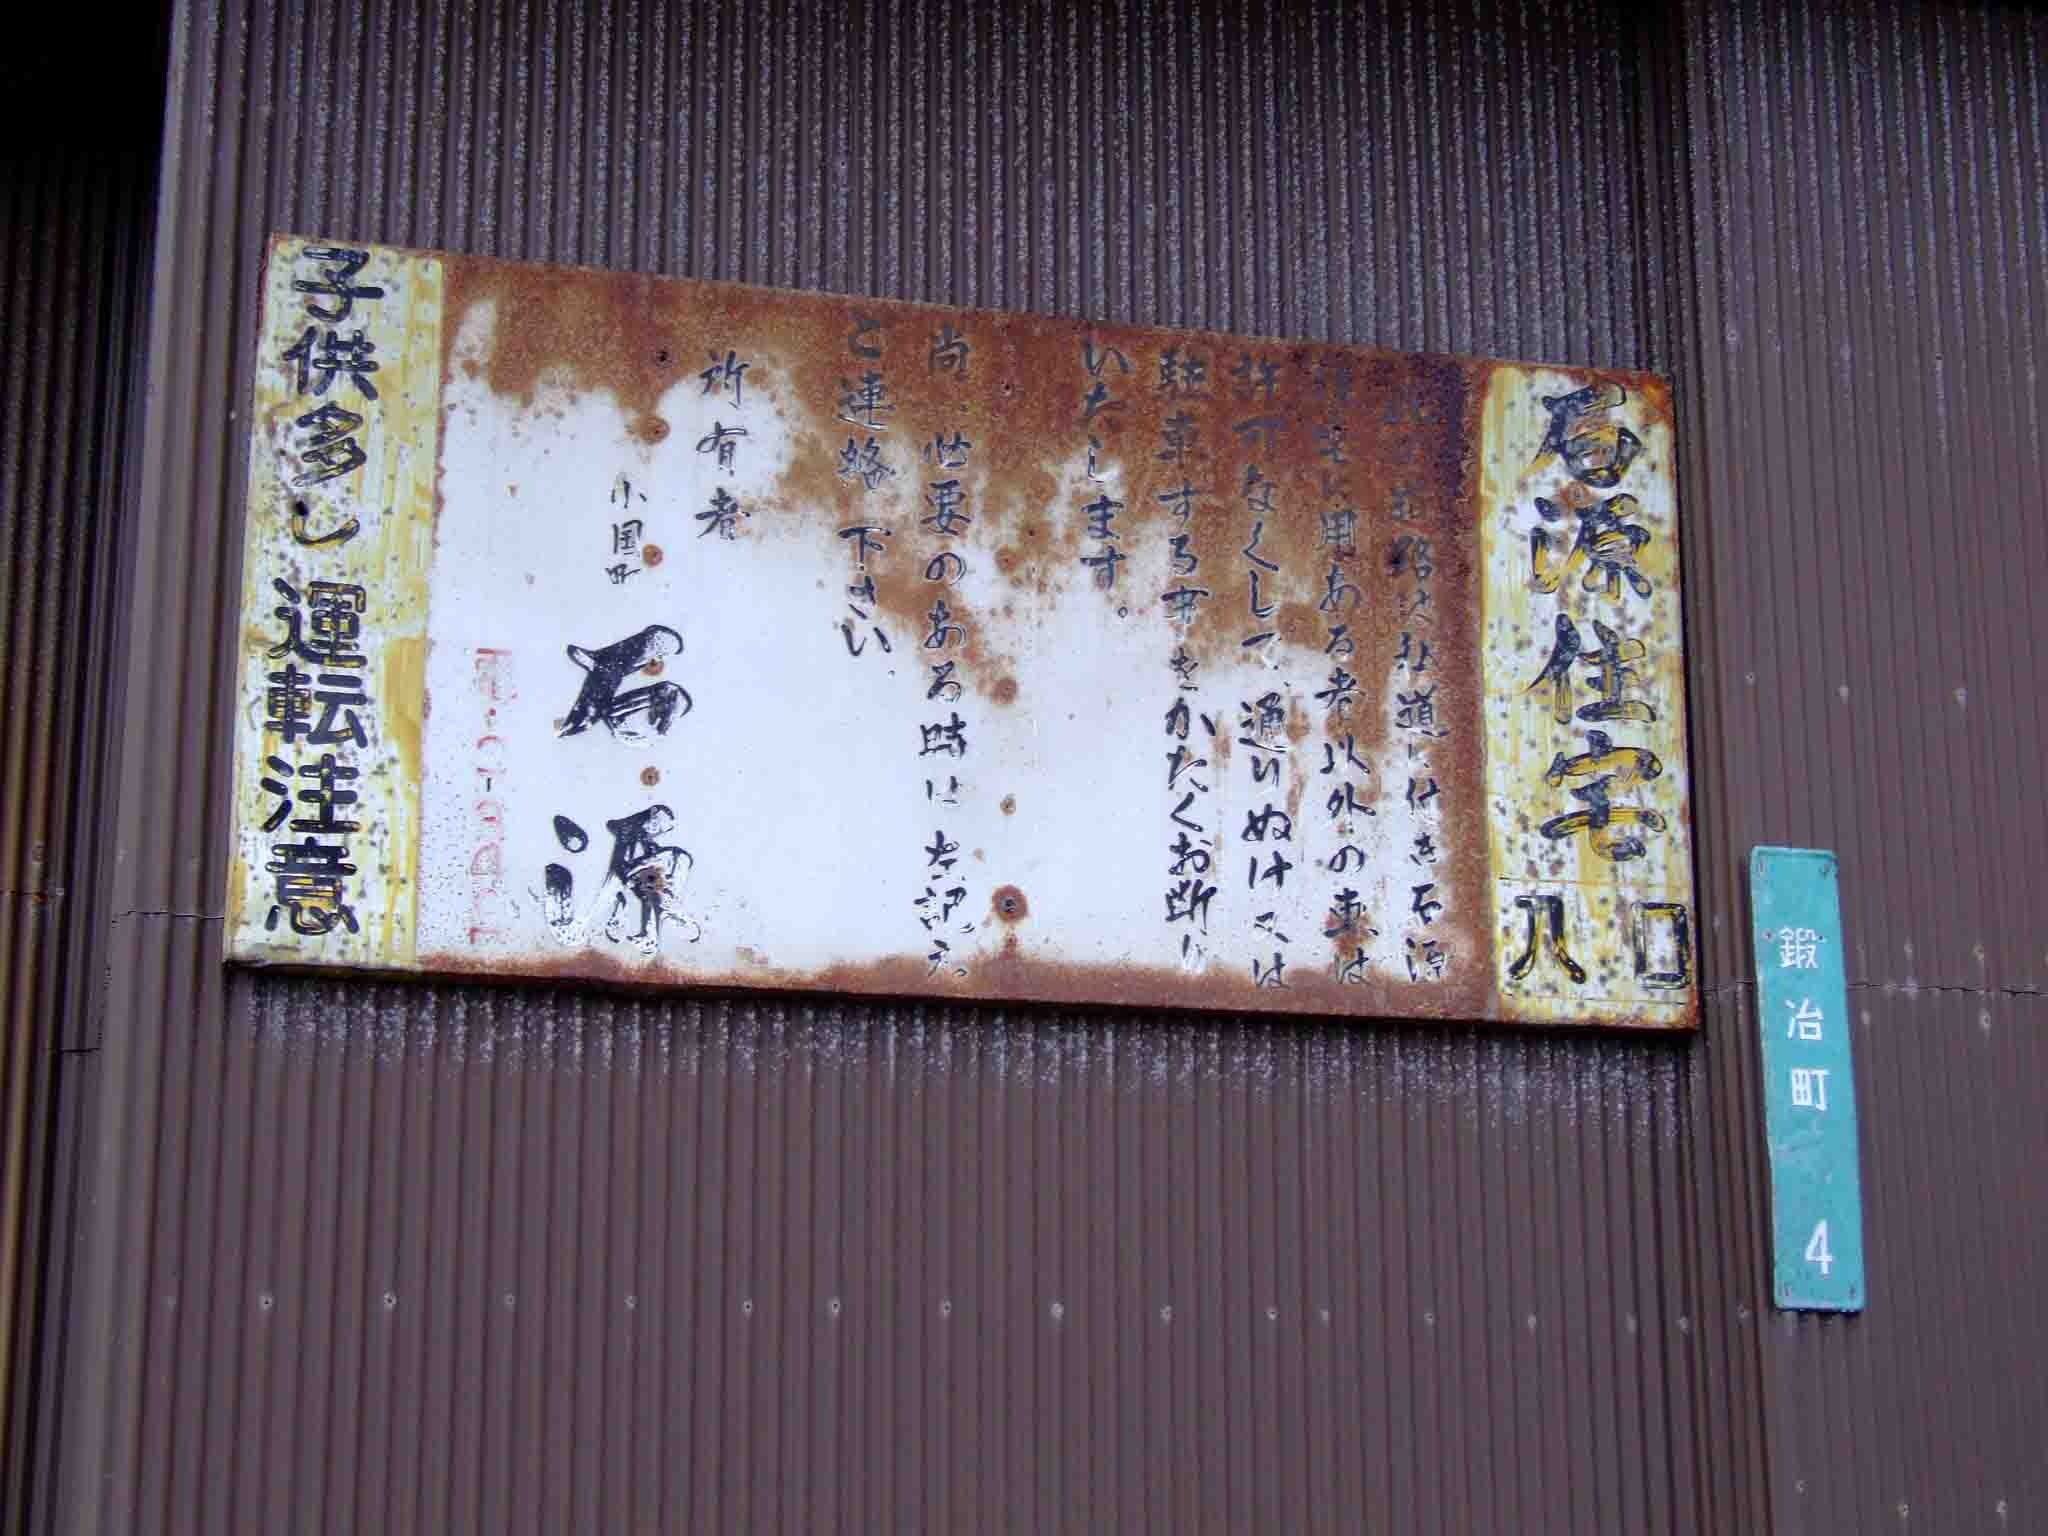 石源住宅 入口
道路は私道に付き石源
住宅に用ある者以外の車は
許可なくして、通りぬけ又は
駐車する事をかたくお断り
いたします。
尚、必要のある時は左記え
と連絡下さい、
所有者
小国町
石源
子供多し 運転注意
鍛冶町 4